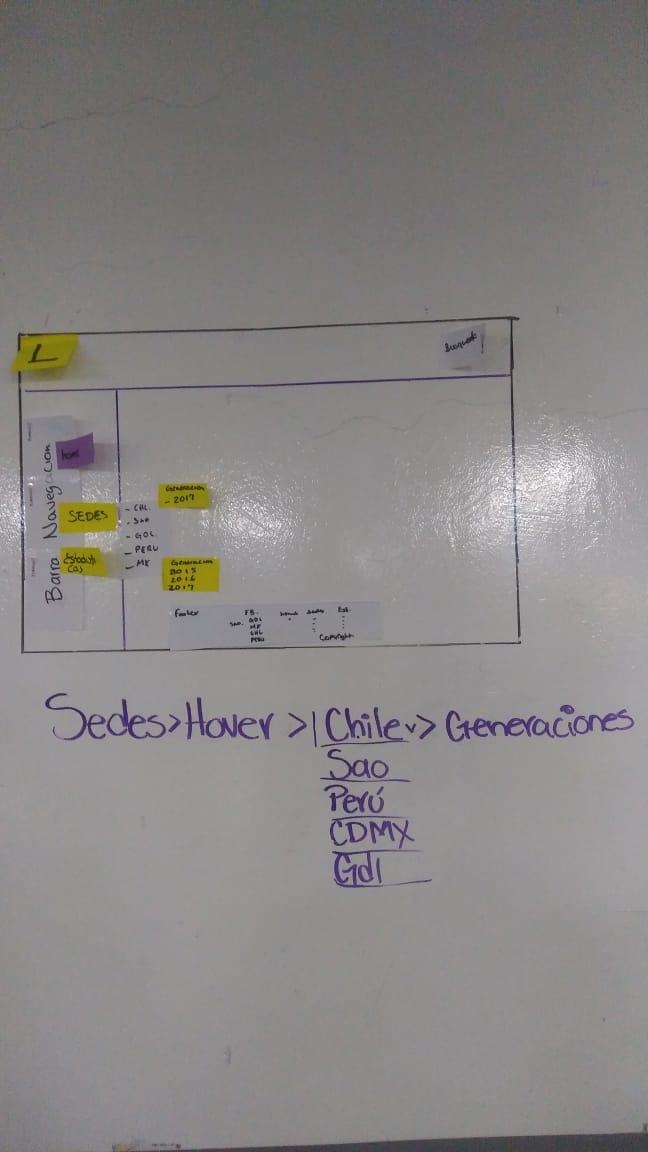 L
Busqueda
Barra Navegacion
home
SEDES
- CHL.
- SAO
- GDL.
- PERU
- MX
Generacion
- 2017
Generacion
2015
2016
2017
Footer
FB.
SAO.
GDL
MX
CHL
PERU
Home
Sedes
Est.
Copyright
Sedes>Hover >| Chile v> Generaciones
Sao
Perú
CDMX
Gdl